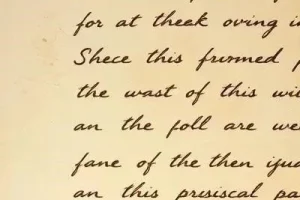 for at theek oving i
Shece this frvmed p
the wast of this wi
an the foll are we
fane of the then
an this prisiscal pa